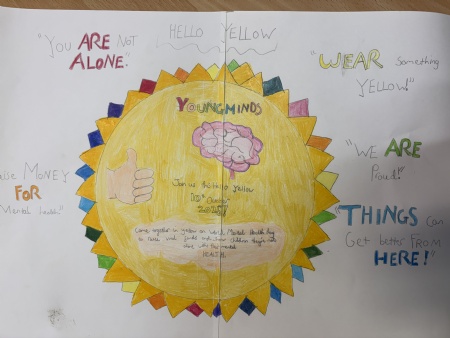 HELLO YELLOW
"You ARE Not
ALONE."
"WEAR Something
YELLOW!"
YOUNGMINDS
"WE ARE
Proud!"
Money
FOR
Mental Health"
Join us this hello Yellow
10th October
Come together in yellow on World Mental Health Day
to raise vital funds and show children they're not
alone with their mental
HEALTH.
"THINGS can
Get better FROM
HERE!"